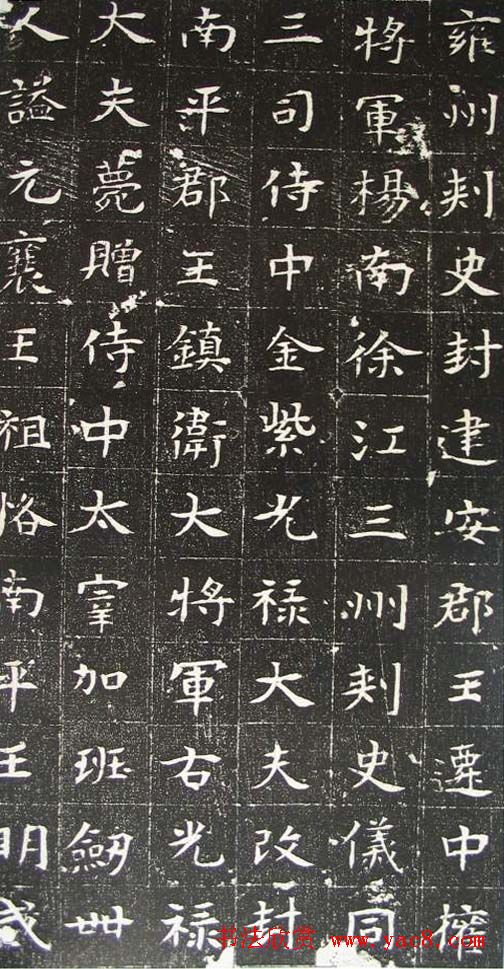 雍州刾史封建安郡王遷中㩲
將軍楊南徐江三州刾史儀同
三司侍中金紫光禄大夫改封
南平郡王鎮衛大將軍右光禄
大夫薨贈侍中太宰加班劒丗
人謚元襄王祖恪南平王明
书法欣赏 www.yac8.com